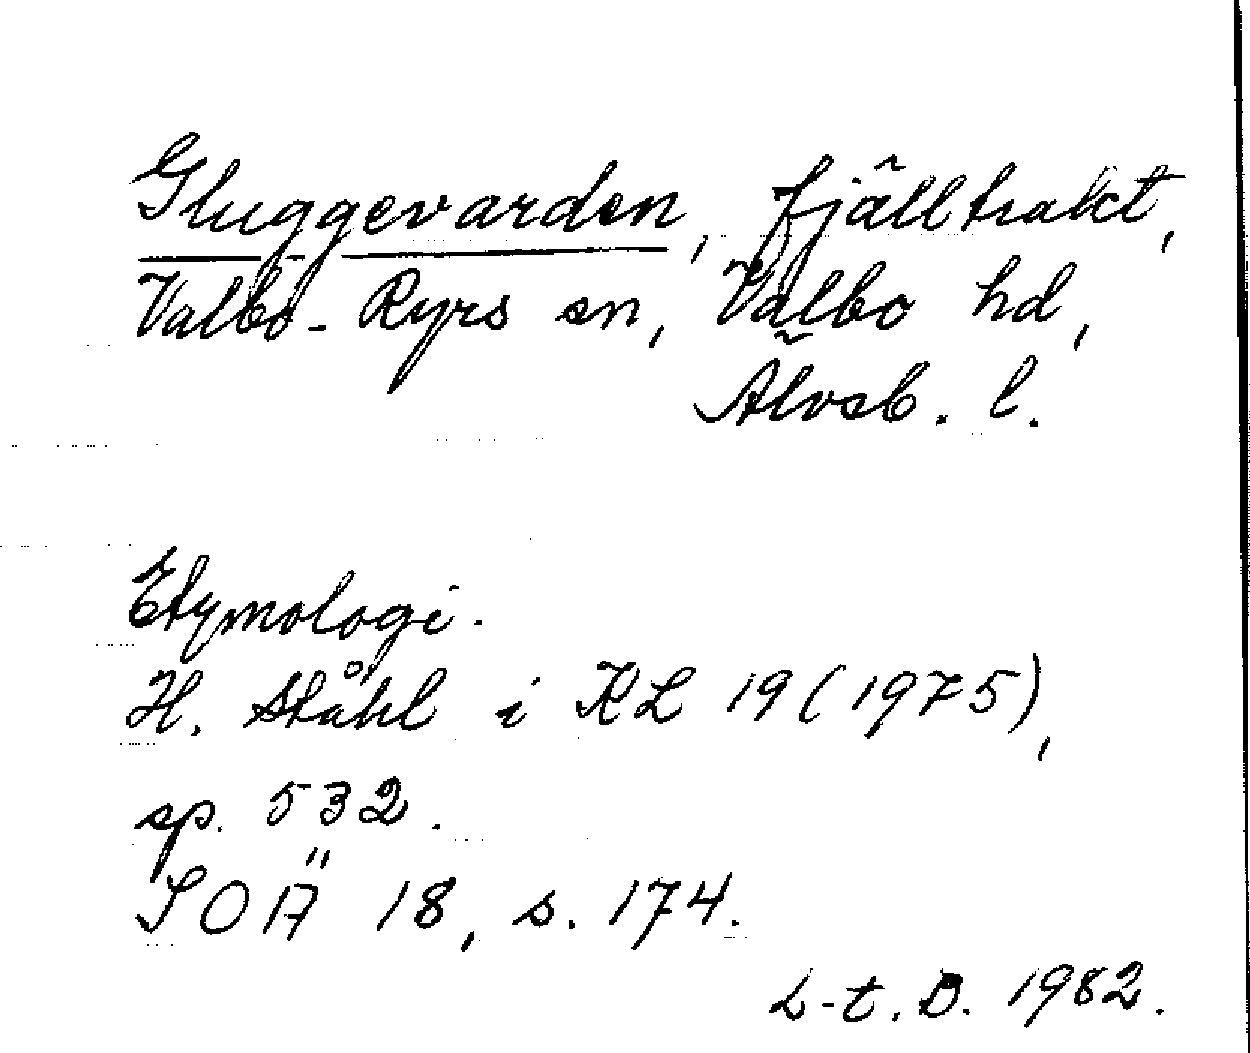 Gluggevarden, fjälltrakt,
Valbo-Ryrs sn, Valbo hd,
Älvsb. l.
Etymologi.
H. Ståhl i KL 19 (1975),
sp. 532.
SOÄ 18, s. 174.
L-t. B. 1982.